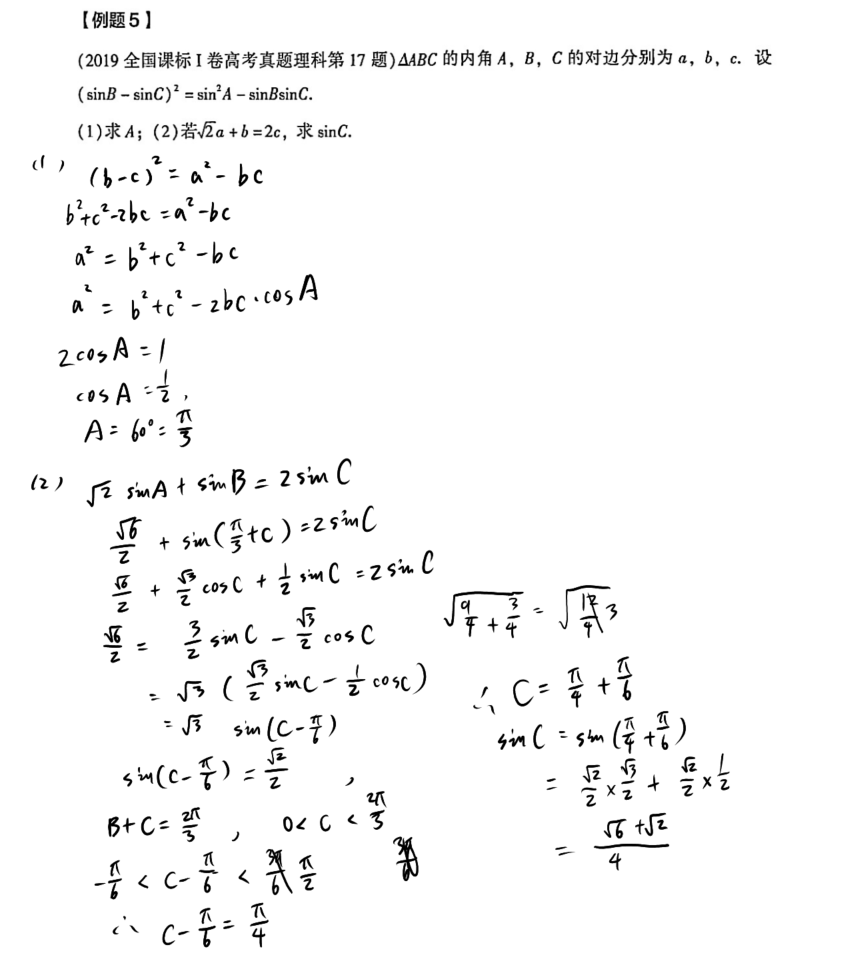 【例题5】
(2019 全国课标 I 卷高考真题理科第 17 题)△ABC 的内角 A，B，C 的对边分别为 a，b，c. 设
(sinB－sinC)²＝sin²A－sinBsinC.
(1)求 A；(2)若√2a＋b＝2c，求 sinC.
(1) (b-c)² = a² - bc
b²+c²-2bc = a²-bc
a² = b²+c²-bc
a² = b²+c²-2bc·cosA
2cosA = 1
cosA = 1/2,
A = 60° = π/3
(2) √2 sinA + sinB = 2sinC
√6/2 + sin(π/3+C) = 2sinC
√6/2 + √3/2 cosC + 1/2 sinC = 2sinC
√6/2 = 3/2 sinC - √3/2 cosC
= √3 (√3/2 sinC - 1/2 cosC)
= √3 sin(C-π/6)
sin(C-π/6) = √2/2,
B+C = 2π/3, 0 < C < 2π/3
-π/6 < C-π/6 < π/2
∴ C-π/6 = π/4
√(9/4 + 3/4) = √3
∴ C = π/4 + π/6
sinC = sin(π/4 + π/6)
= √2/2 × √3/2 + √2/2 × 1/2
= (√6+√2)/4